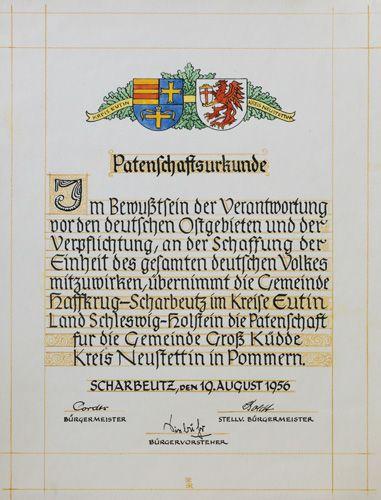 KREIS EUTIN
KREIS NEUSTETTIN
Patenschaftsurkunde
Im Bewußtsein der Verantwortung
vor den deutschen Ostgebieten und der
Verpflichtung, an der Schaffung der
Einheit des gesamten deutschen Volkes
mitzuwirken, übernimmt die Gemeinde
Haffkrug-Scharbeutz im Kreise Eutin
Land Schleswig-Holstein die Patenschaft
für die Gemeinde Groß Küdde
Kreis Neustettin in Pommern.
SCHARBEUTZ, DEN 19. AUGUST 1956
Cordes
BÜRGERMEISTER
STELLV. BÜRGERMEISTER
BÜRGERVORSTEHER